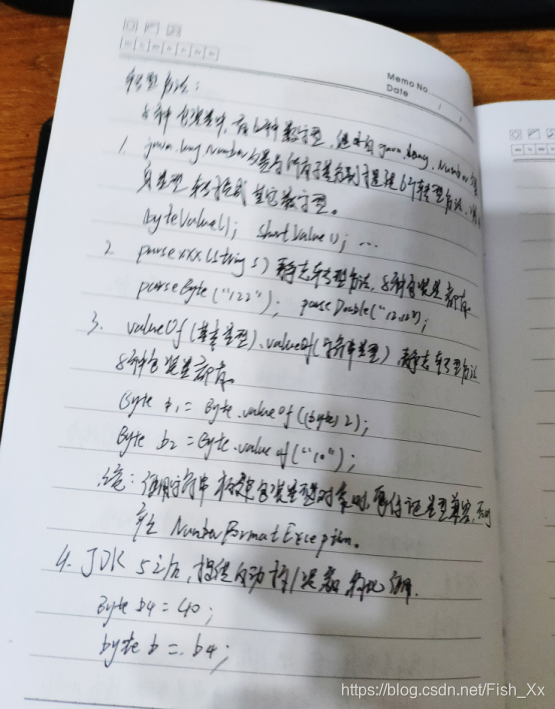 Memo No.
Date / /
转型方法：
8种包装类中，有6种数字型，继承自java.lang.Number父类
1. java.lang.Number父类为所有子类分别提供6个转型方法，将
自类型转换成其它数字型。
ByteValue(); shortValue(); ...
2. parseXXX(String s) 静态转型方法，8种包装类都有。
parseByte("122"); parseDouble("12.12");
3. valueOf(基本类型).valueOf(字符串类型) 静态转型方法
8种包装类都有。
Byte b1 = Byte.valueOf((byte) 2);
Byte b2 = Byte.valueOf("10");
注：调用字符串构建包装类型对象时，要保证类型兼容，否则
产生 NumberFormatException。
4. JDK 5之后，提供自动拆/装
Byte b4 = 40;
byte b = b4;
https://blog.csdn.net/Fish_Xx